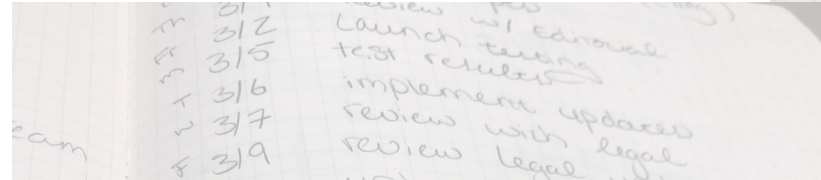 Th 3/1 review w/ editorial
Fr 3/2 Launch testing
M 3/5 test results
T 3/6 implement updates
W 3/7 review with legal
F 3/9 review legal
eam